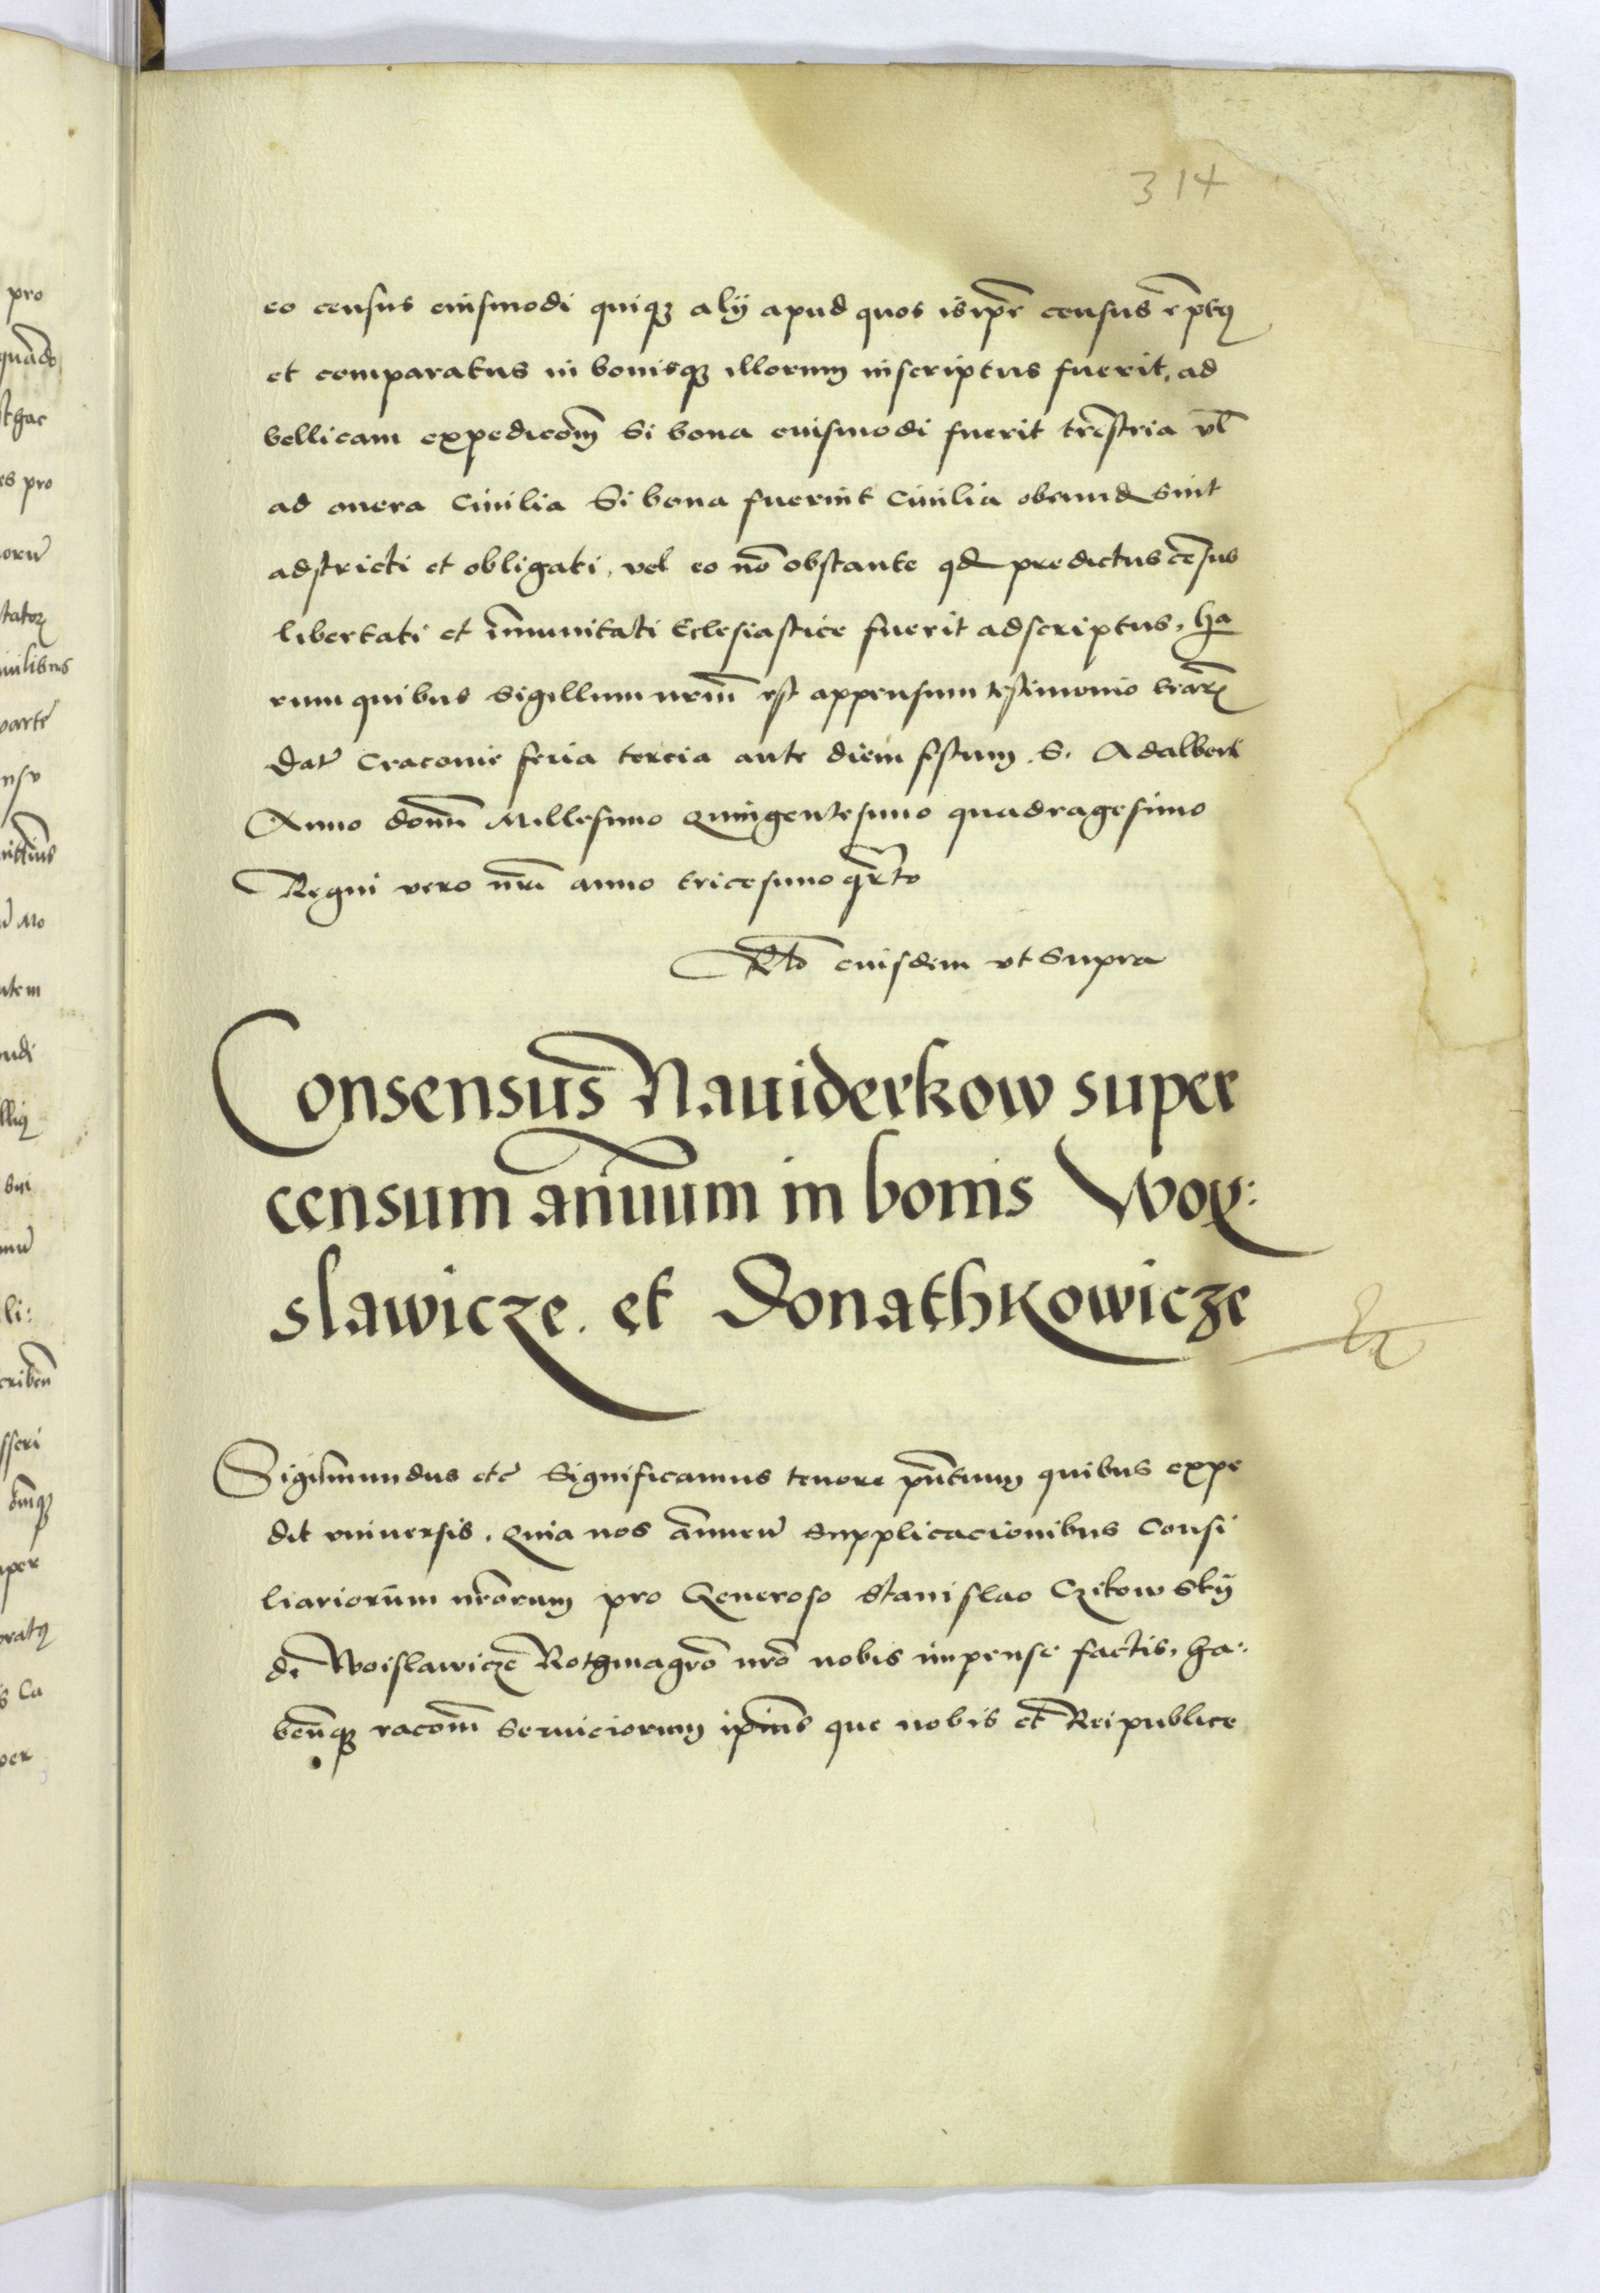 314
eo census eiusmodi quiqz alÿ apud quos is ip̄e census ēptus
et comparatus in bonisqz illorum inscriptus fuerit, ad
bellicam expedicōm Si bona eiusmodi fuerit trēstria vl̄
ad onera Ciuilia Si bona fuerint Ciuilia obeund sint
adstricti et obligati, vel eo nō obstante qd predictus cēsus
libertati et īmunitati Eclesiastice fuerit adscriptus, ha
rum quibus Sigillum nrm̄ est appensum testimonio lrarꝫ
Dat Cracouie feria tercia ante diem festum S. Adalberti
Anno domī Millesimo Quingentesimo quadragesimo
Regni vero nrī anno tricesimo qrto
Rlo eiusdem vt Supra
Consensus Nauiderkow super
censum annuum in bonis Woy:
slawicze. et Donathkowicze
Sigismundus etc Significamus tenore pn̄tium quibus expe
dit vniuersis. Quia nos annuen Supplicacionibus Consi
liariorum nrōrum pro Generoso Stanislao Czikowskÿ
de Woislawicze Rothmagrō nrō nobis impense factis, ha:
ben̄qz racom̄ Seruiciorum ipīus que nobis et Reipublice
pro